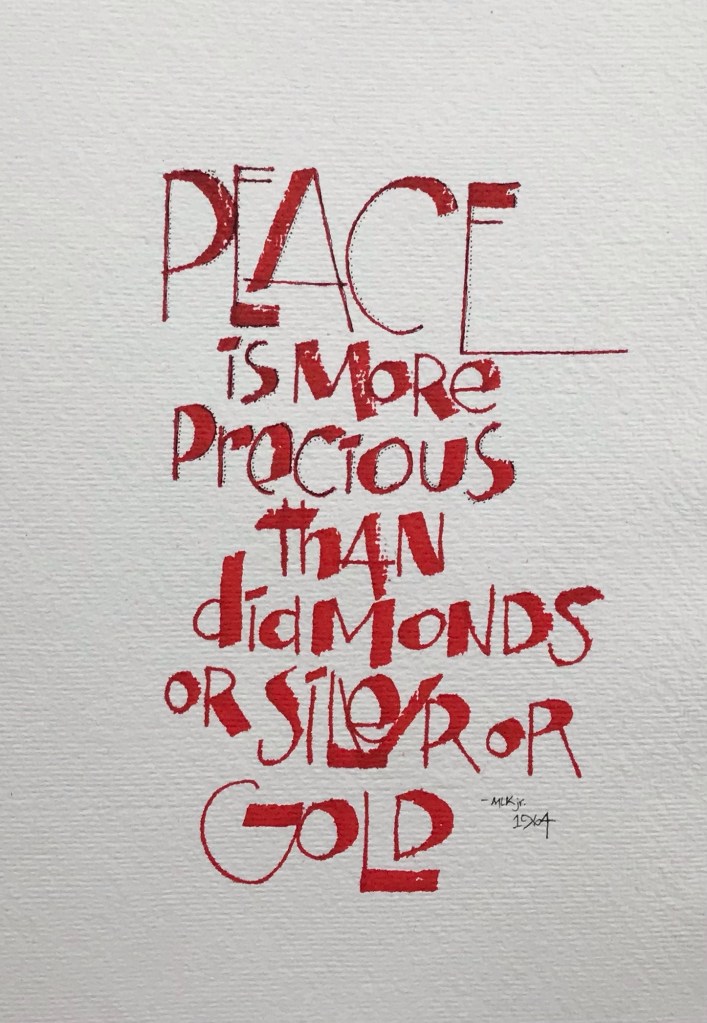 PEACE
is MORe
Precious
thAN
diaMONDS
OR SilVeR OR
GOLD
-MLKjr.
1964